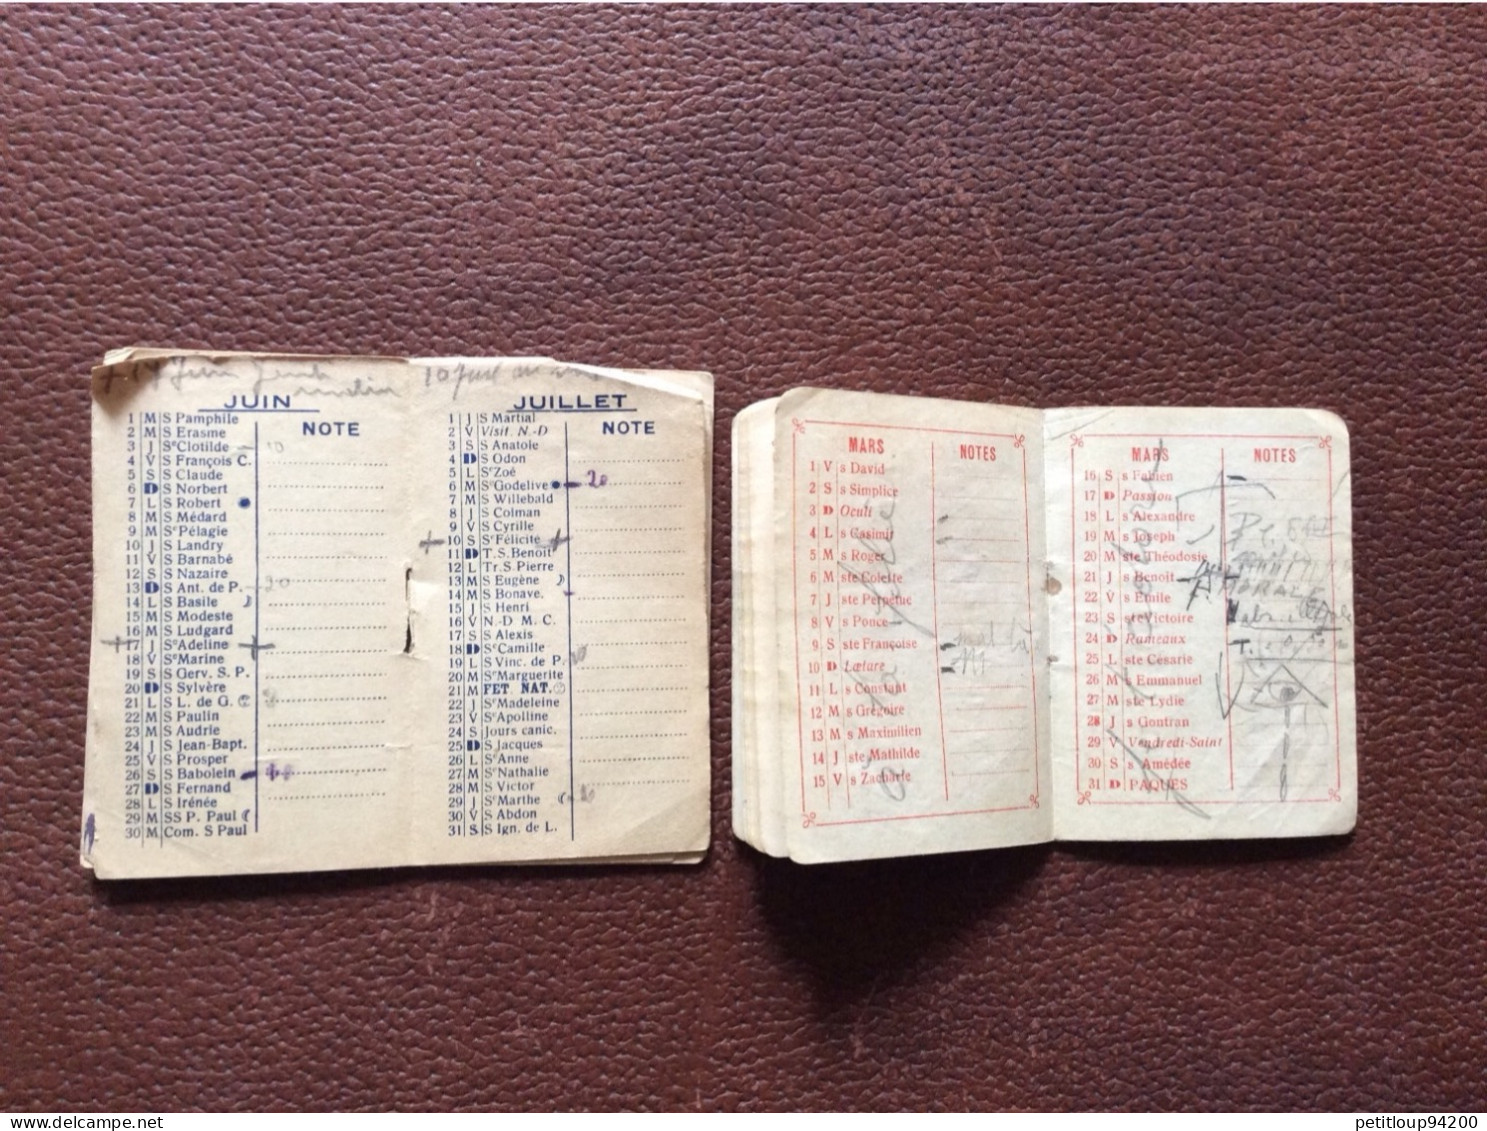 JUIN
NOTE
1 M S Pamphile
2 M S Erasme
3 J Se Clotilde
4 V S François C.
5 S S Claude
6 D S Norbert
7 L S Robert
8 M S Médard
9 M Se Pélagie
10 J S Landry
11 V S Barnabé
12 S S Nazaire
13 D S Ant. de P.
14 L S Basile
15 M S Modeste
16 M S Ludgard
17 J Se Adeline
18 V Se Marine
19 S S Gerv. S. P.
20 D S Sylvère
21 L S L. de G.
22 M S Paulin
23 M S Audrie
24 J S Jean-Bapt.
25 V S Prosper
26 S S Babolein
27 D S Fernand
28 L S Irénée
29 M SS P. Paul
30 M Com. S Paul
JUILLET
NOTE
1 J S Martial
2 V Visit. N.-D
3 S S Anatole
4 D S Odon
5 L Se Zoé
6 M Se Godelive 20
7 M S Willebald
8 J S Colman
9 V S Cyrille
10 S Se Félicité
11 D T. S. Benoit
12 L Tr. S. Pierre
13 M S Eugène
14 M S Bonave.
15 J S Henri
16 V N.-D M. C.
17 S S Alexis
18 D Se Camille
19 L S Vinc. de P.
20 M Se Marguerite
21 M FET. NAT.
22 J Se Madeleine
23 V Se Apolline
24 S Jours canic.
25 D S Jacques
26 L Se Anne
27 M Se Nathalie
28 M S Victor
29 J Se Marthe
30 V S Abdon
31 S S Ign. de L.
MARS
NOTES
1 V s David
2 S s Simplice
3 D Oculi
4 L s Casimir
5 M s Roger
6 M ste Colette
7 J ste Perpétue
8 V s Ponce
9 S ste Françoise
10 D Lætare
11 L s Constant
12 M s Grégoire
13 M s Maximilien
14 J ste Mathilde
15 V s Zacharie
MARS
NOTES
16 S s Fabien
17 D Passion
18 L s Alexandre
19 M s Joseph
20 M ste Théodosie
21 J s Benoit
22 V s Émile
23 S ste Victoire
24 D Rameaux
25 L ste Césarie
26 M s Emmanuel
27 M ste Lydie
28 J s Gontran
29 V Vendredi-Saint
30 S s Amédée
31 D PAQUES
petitloup94200